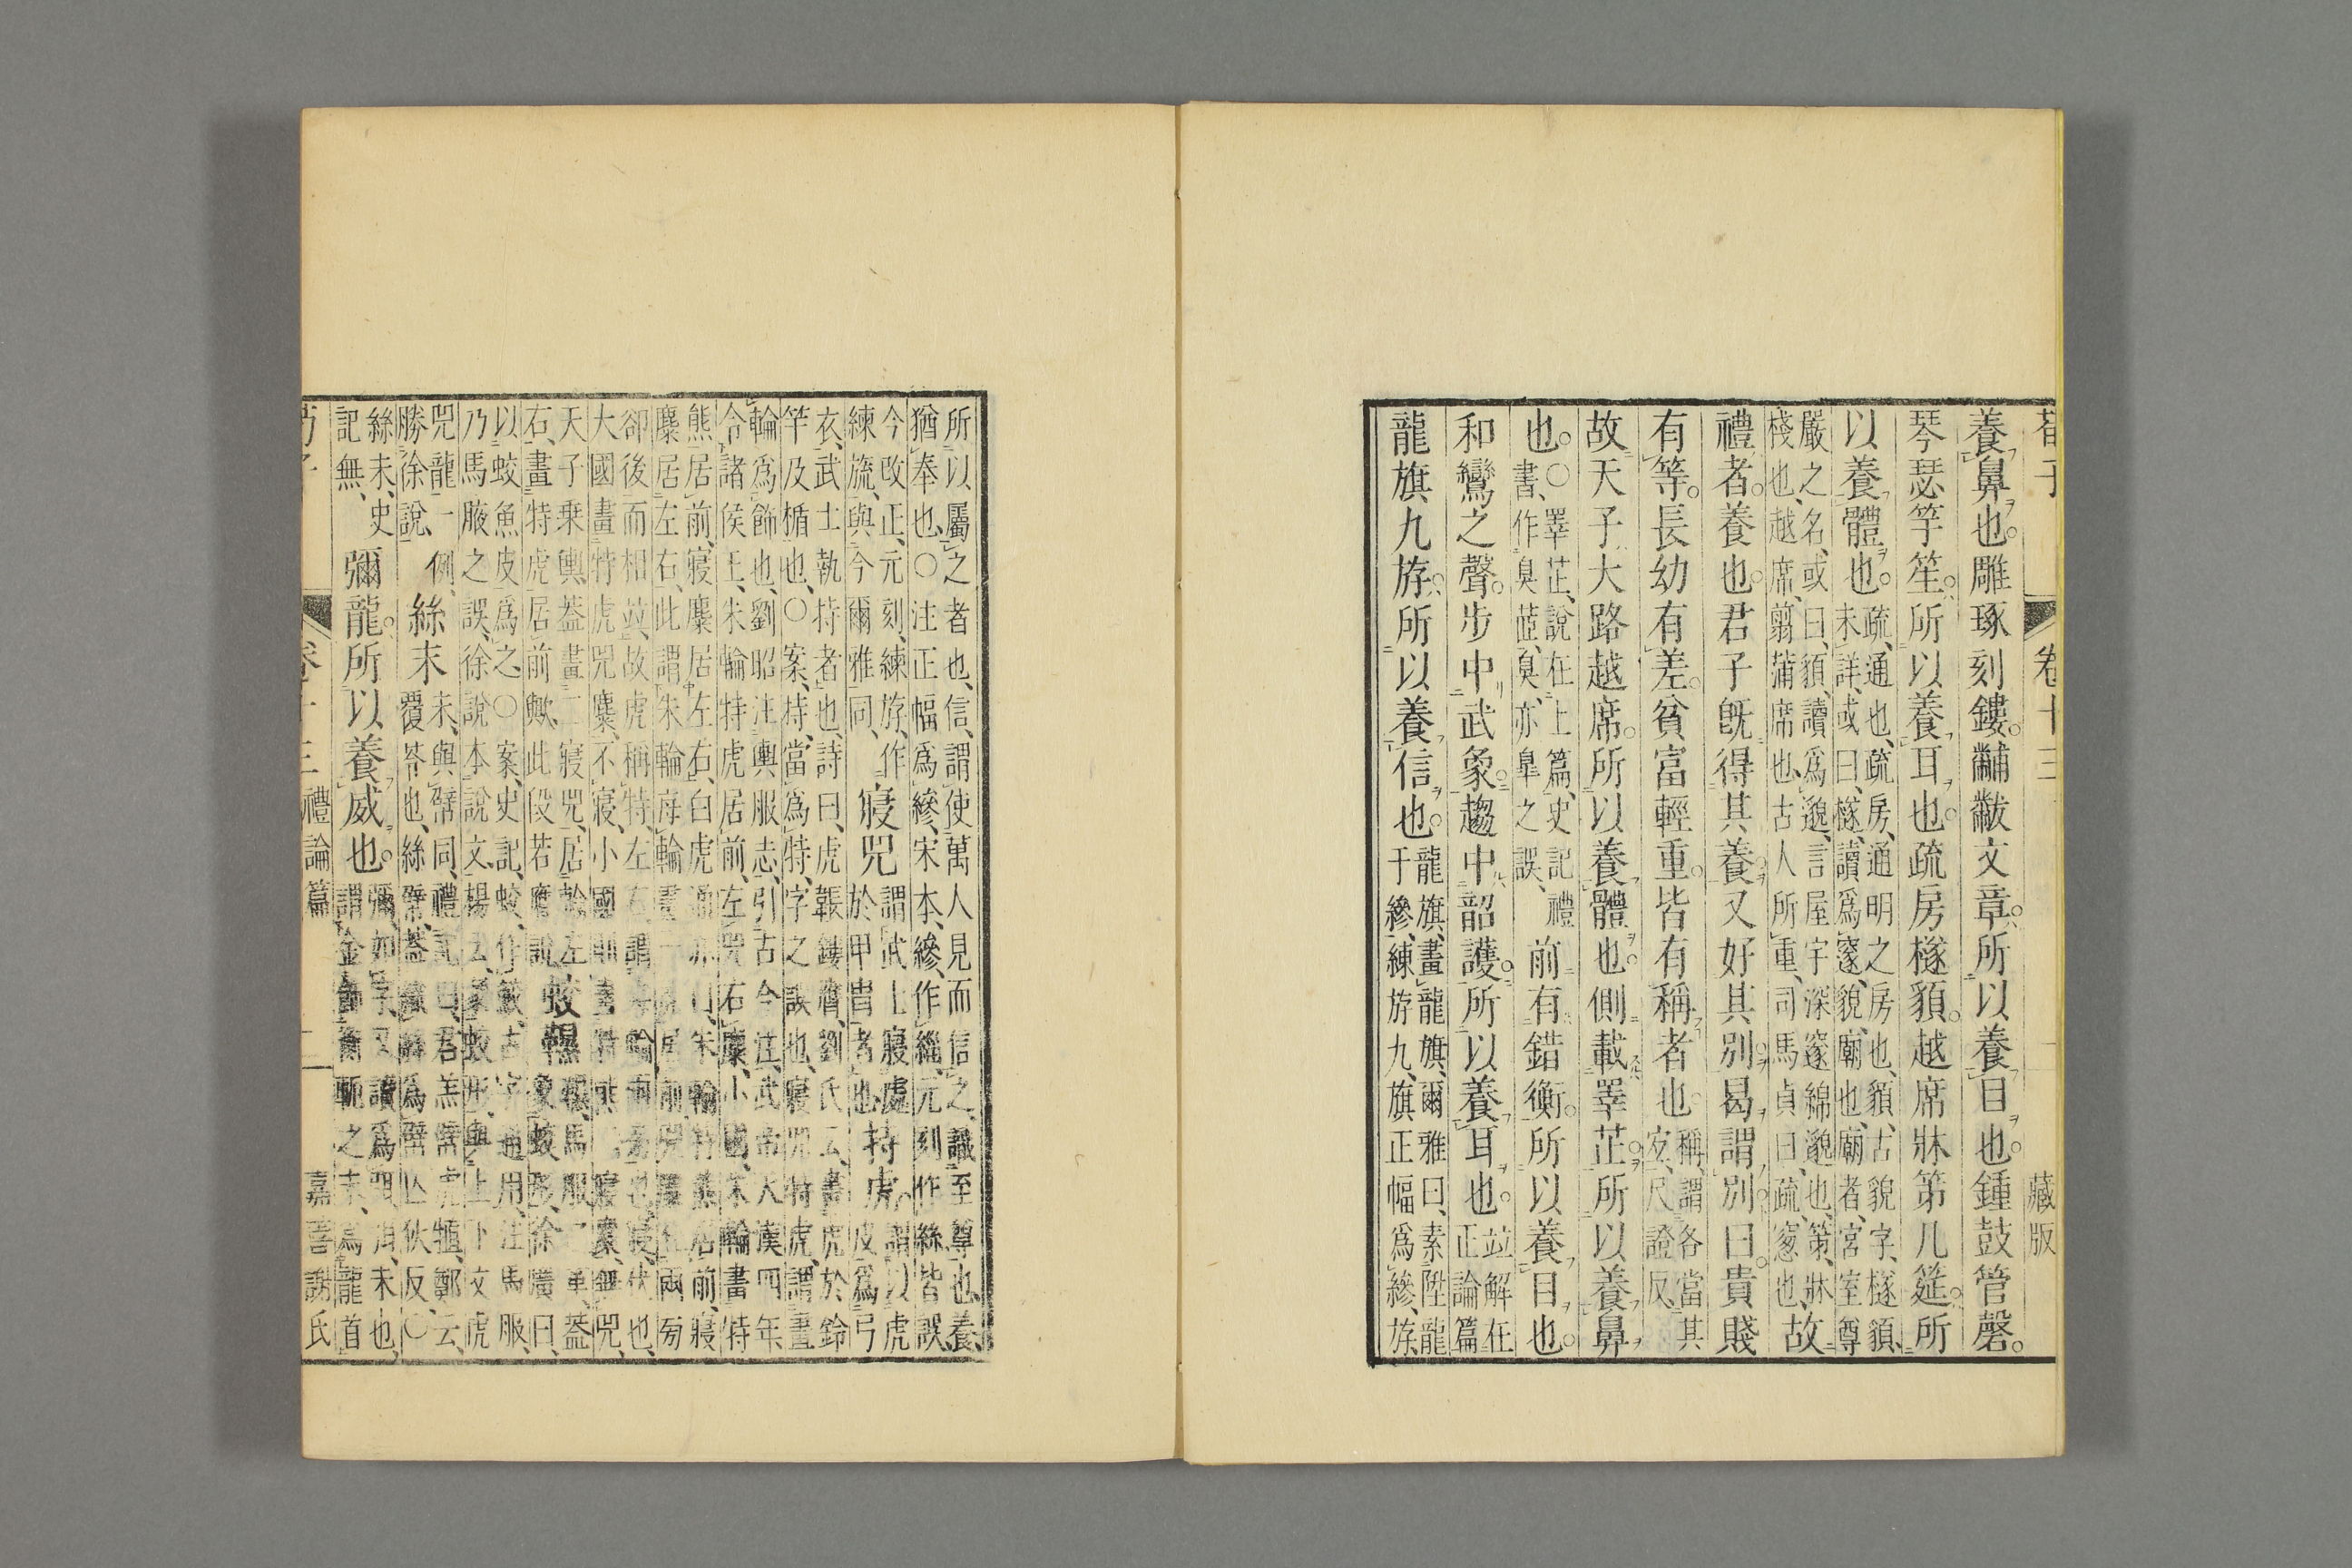 荀子 卷十三 藏版
養鼻也。雕琢刻鏤。黼黻文章。所以養目也。鍾鼓管磬。
琴瑟竽笙。所以養耳也。疏房檖䫉。越席牀第几筵。所
以養體也。疏、通也、疏房、通明之房也、䫉、古貌字、檖䫉、
未詳、或曰、檖、讀爲邃、貌、廟也、廟者、宮室尊
嚴之名、或曰、䫉、讀爲邈、言屋宇深邃綿邈也、第、牀
棧也、越席、翦蒲席也、古人所重、司馬貞曰、疏、窻也、故
禮者。養也。君子既得其養。又好其別。曷謂別。曰。貴賤
有等。長幼有差。貧富輕重。皆有稱者也。稱、謂各當其
宐、尺證反、
故天子大路越席。所以養體也。側載睪芷。所以養鼻
也。○睪芷、說在上篇、史記禮
書、作臭茝、臭、亦皐之誤、前有錯衡。所以養目也。
和鸞之聲。步中武象。趨中韶護。所以養耳也。竝解在
正論篇
龍旗九斿。所以養信也。龍旗、畫龍旗、爾雅曰、素陞龍
于縿、練斿九、旗正幅爲縿、斿、
所以屬之者也、信、謂使萬人見而信之、識至尊也、養、
猶奉也、○注正幅爲縿、宋本、縿、作繩、元刻作絲皆誤、
今改正、元刻、練斿、作
練旒、與今爾雅同、寢兕謂武士寢處
於甲冑者也、持虎。謂以虎
皮爲弓
衣、武士執持者也、詩曰、虎韔鏤膺、劉氏云、畫虎於鈴
竿及楯也、○案、持、當爲特、字之誤也、寢兕特虎、謂畫
輪爲飾也、劉昭注輿服志、引古今注、武帝天漢四年、
令諸侯王、朱輪特虎居前、左兕右麋、小國、朱輪畫特
熊居前、寢麋居左右、白虎通亦曰、朱輪特熊居前、寢
麋居左右、此謂朱輪每輪畫一虎居前、兕麋在兩旁
卻後而相竝、故虎稱特、左右謂每輪兩旁也、寢、伏也、
大國畫特虎兕麋、不寢、小國則畫特熊二寢麋、無兕、
天子乘輿、葢畫二寢兕、居輪左
右、畫特虎居前歟、此段若膺說、蛟韅韅、馬服之革、葢
象蛟形、徐廣曰、
以蛟魚皮爲之、○案、史記、蛟、作鮫、古字通用、注馬服、
乃馬腋之誤、徐說本說文、楊云、象蛟形、與上下文虎
兕龍一例、
勝徐說、絲末末、與幦同、禮記曰、君羔幦虎犆、鄭云、
覆笭也、絲幦、葢織絲爲幦、亾狄反、○
絲末、史
記無、彌龍。所以養威也。彌、如字、又讀爲弭、弭、末也、
謂金飾衡軛之末、爲龍首
荀子 卷十三 禮論篇 二 嘉善謝氏